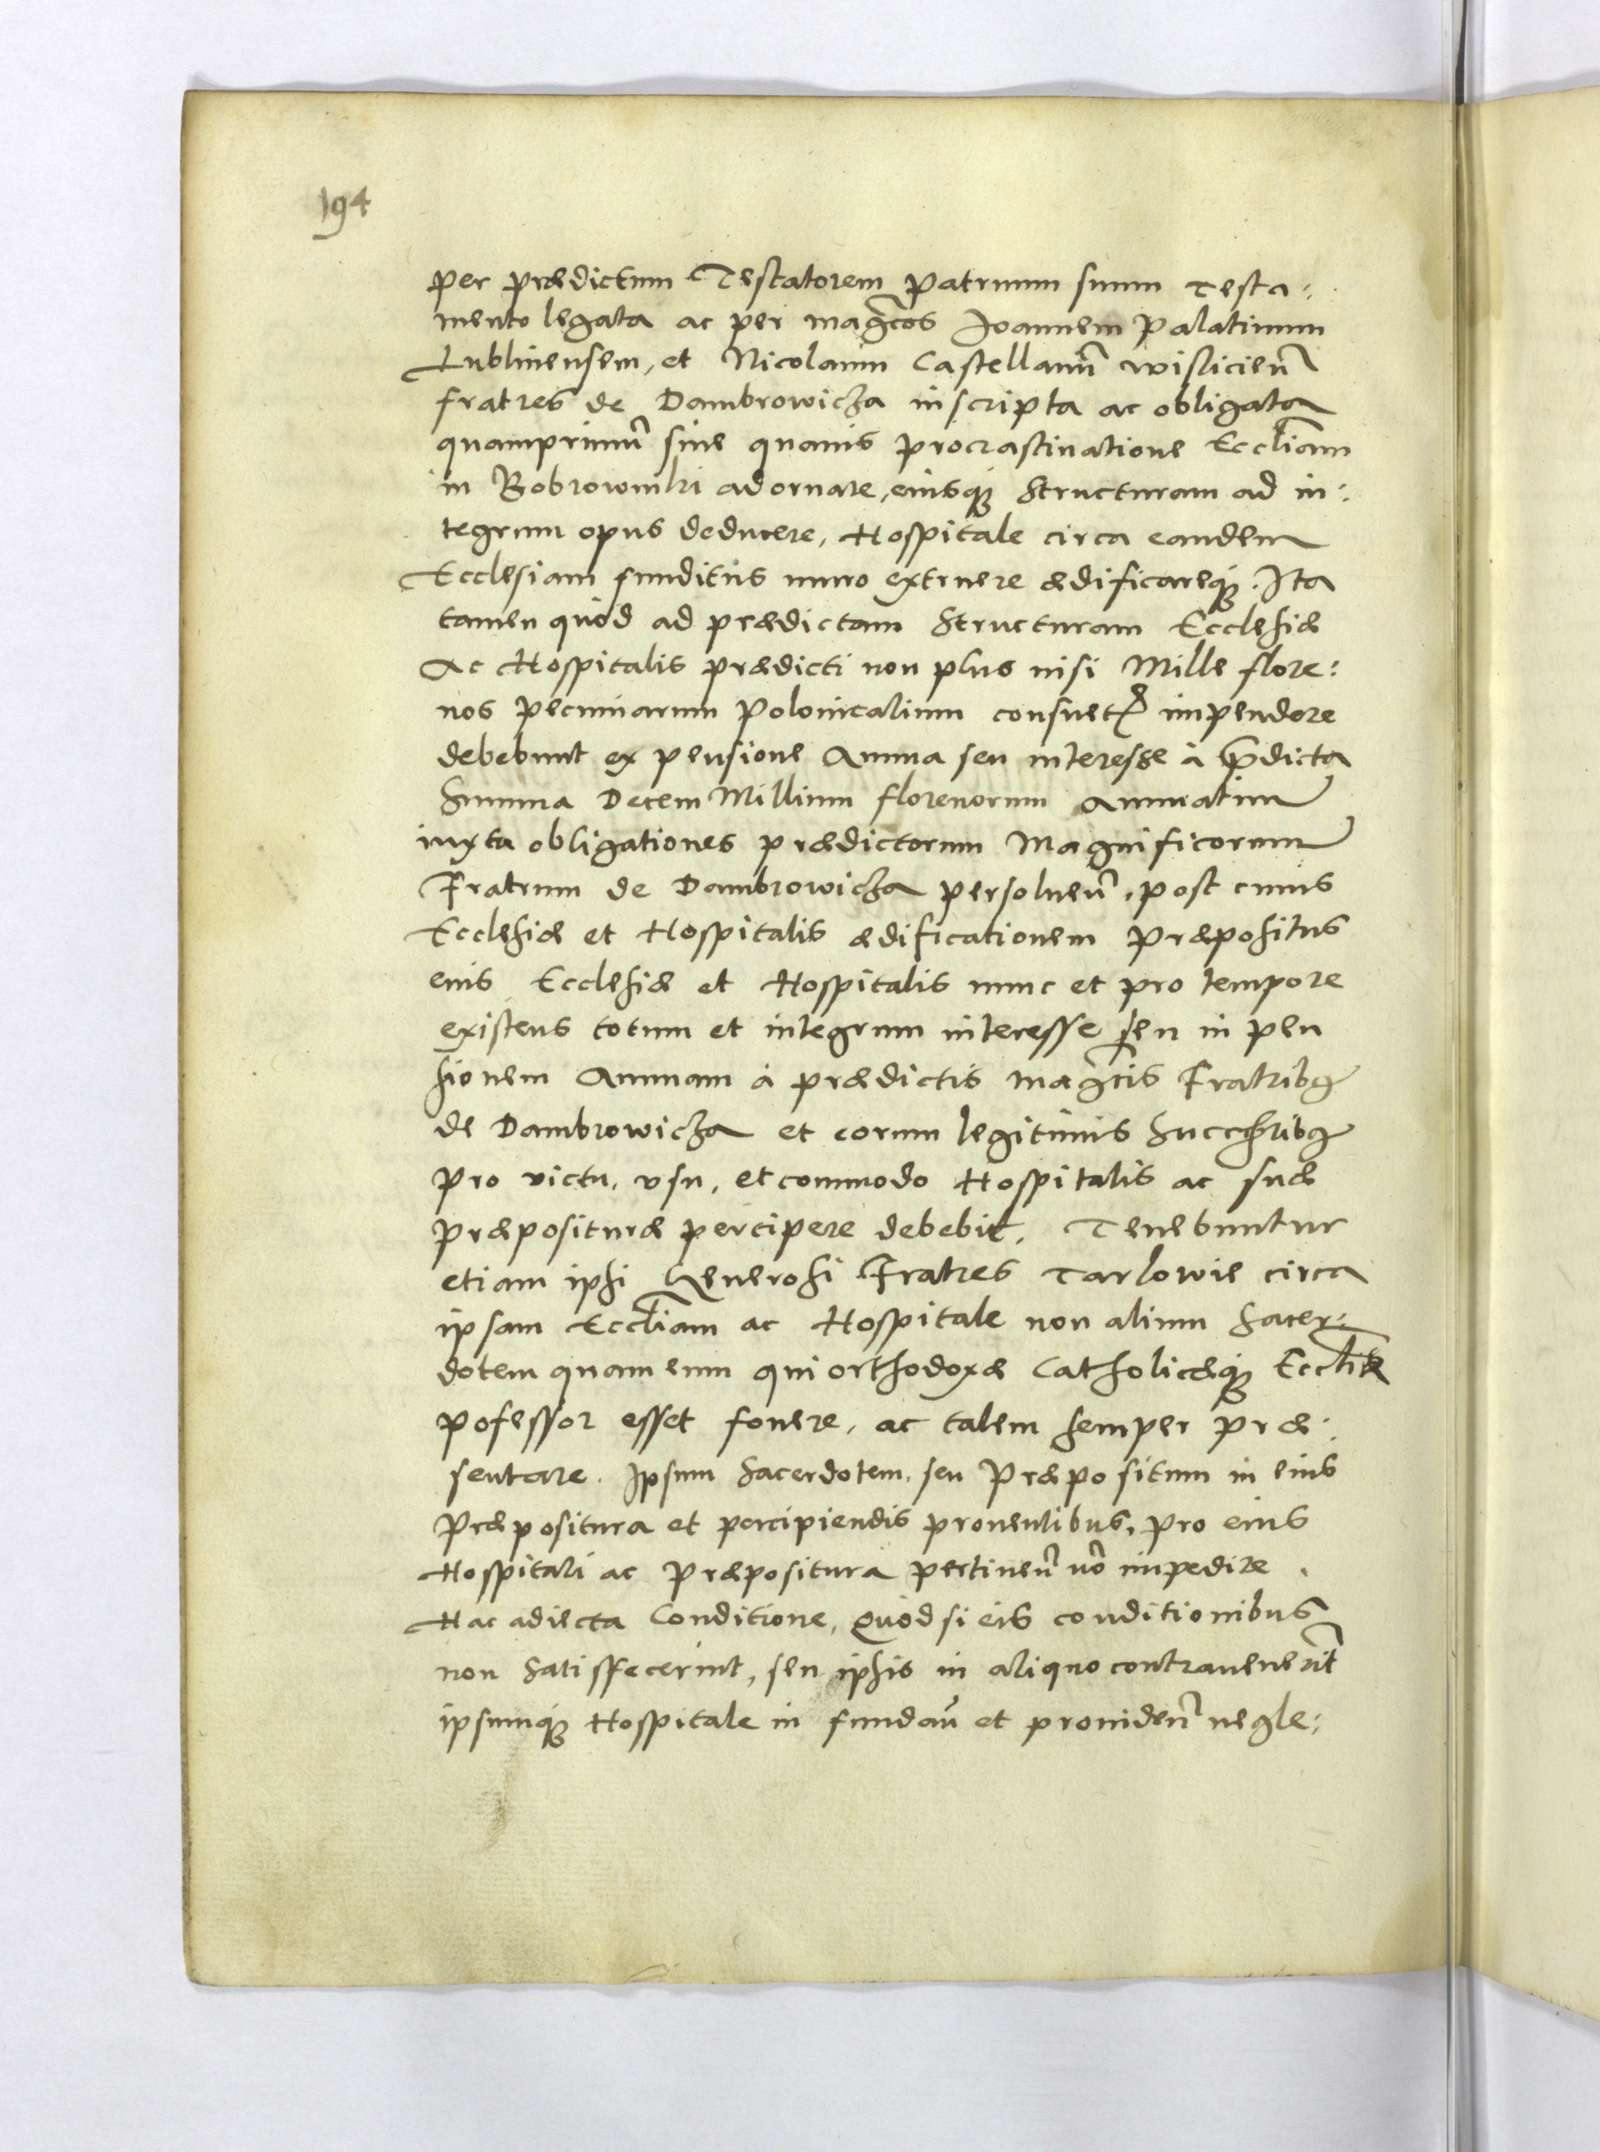 194
per prædictum Testatorem Patruum suum Testa:
mento legata ac per mag̃cos Joannem Palatinum
Lublinensem, et Nicolaum Castellanũ wislicieñ
fratres de Dambrowicza inscripta ac obligata
quamprimũ sine quauis procrastinatione Eccl̃iam
in Bobrowniki adornare, eiusq3 Structuram ad in:
tegrum opus deducere, Hospitale circa eandem
Ecclesiam funditùs muro extruere ædificareq3. Ita
tamen quòd ad prædictam Structuram Ecclesiæ
Ac Hospitalis prædicti non plus nisi Mille flore:
nos pecuniarum Polonicalium consuetꝝ impendere
debebunt ex pensione Annua seu interesse à p̃dicta
Summa Decem Millium florenorum Annuatim
iuxta obligationes prædictorum Magnificorum
Fratrum de Dambrowicza persolueñ, post cuius
Ecclesiæ et Hospitalis ædificationem Præpositus
eius Ecclesiæ et Hospitalis nunc et pro tempore
existens totum et integrum interesse seu in pen
sionem Annuam à prædictis mag̃cis Fratribꝫ
de Dambrowicza et eorum legitimis Succ̃hribꝫ
pro victu, vsu, et commodo Hospitalis ac suæ
præposituræ percipere debebit. Tenebuntur
etiam ipsi Generosi Fratres Tarlowie circa
ipsam Eccl̃iam ac Hospitale non alium Sacer:
dotem quam eum qui orthodoxæ Catholicæq3 Eccl̃iæ
pofessor esset fouere, ac talem semper præ:
sentare. Ipsum Sacerdotem, seu Præpositum in eius
Præpositura et percipiendis prouentibus, pro eius
Hospitali ac Præpositura pertineñ nõ impedire.
Hac adiecta Conditione, Quòd si eis conditionibus
non satisfecerint, seu ipsis in aliquo contrauenerĩt
ipsumq3 Hospitale in fundañ et prouideñ negle: